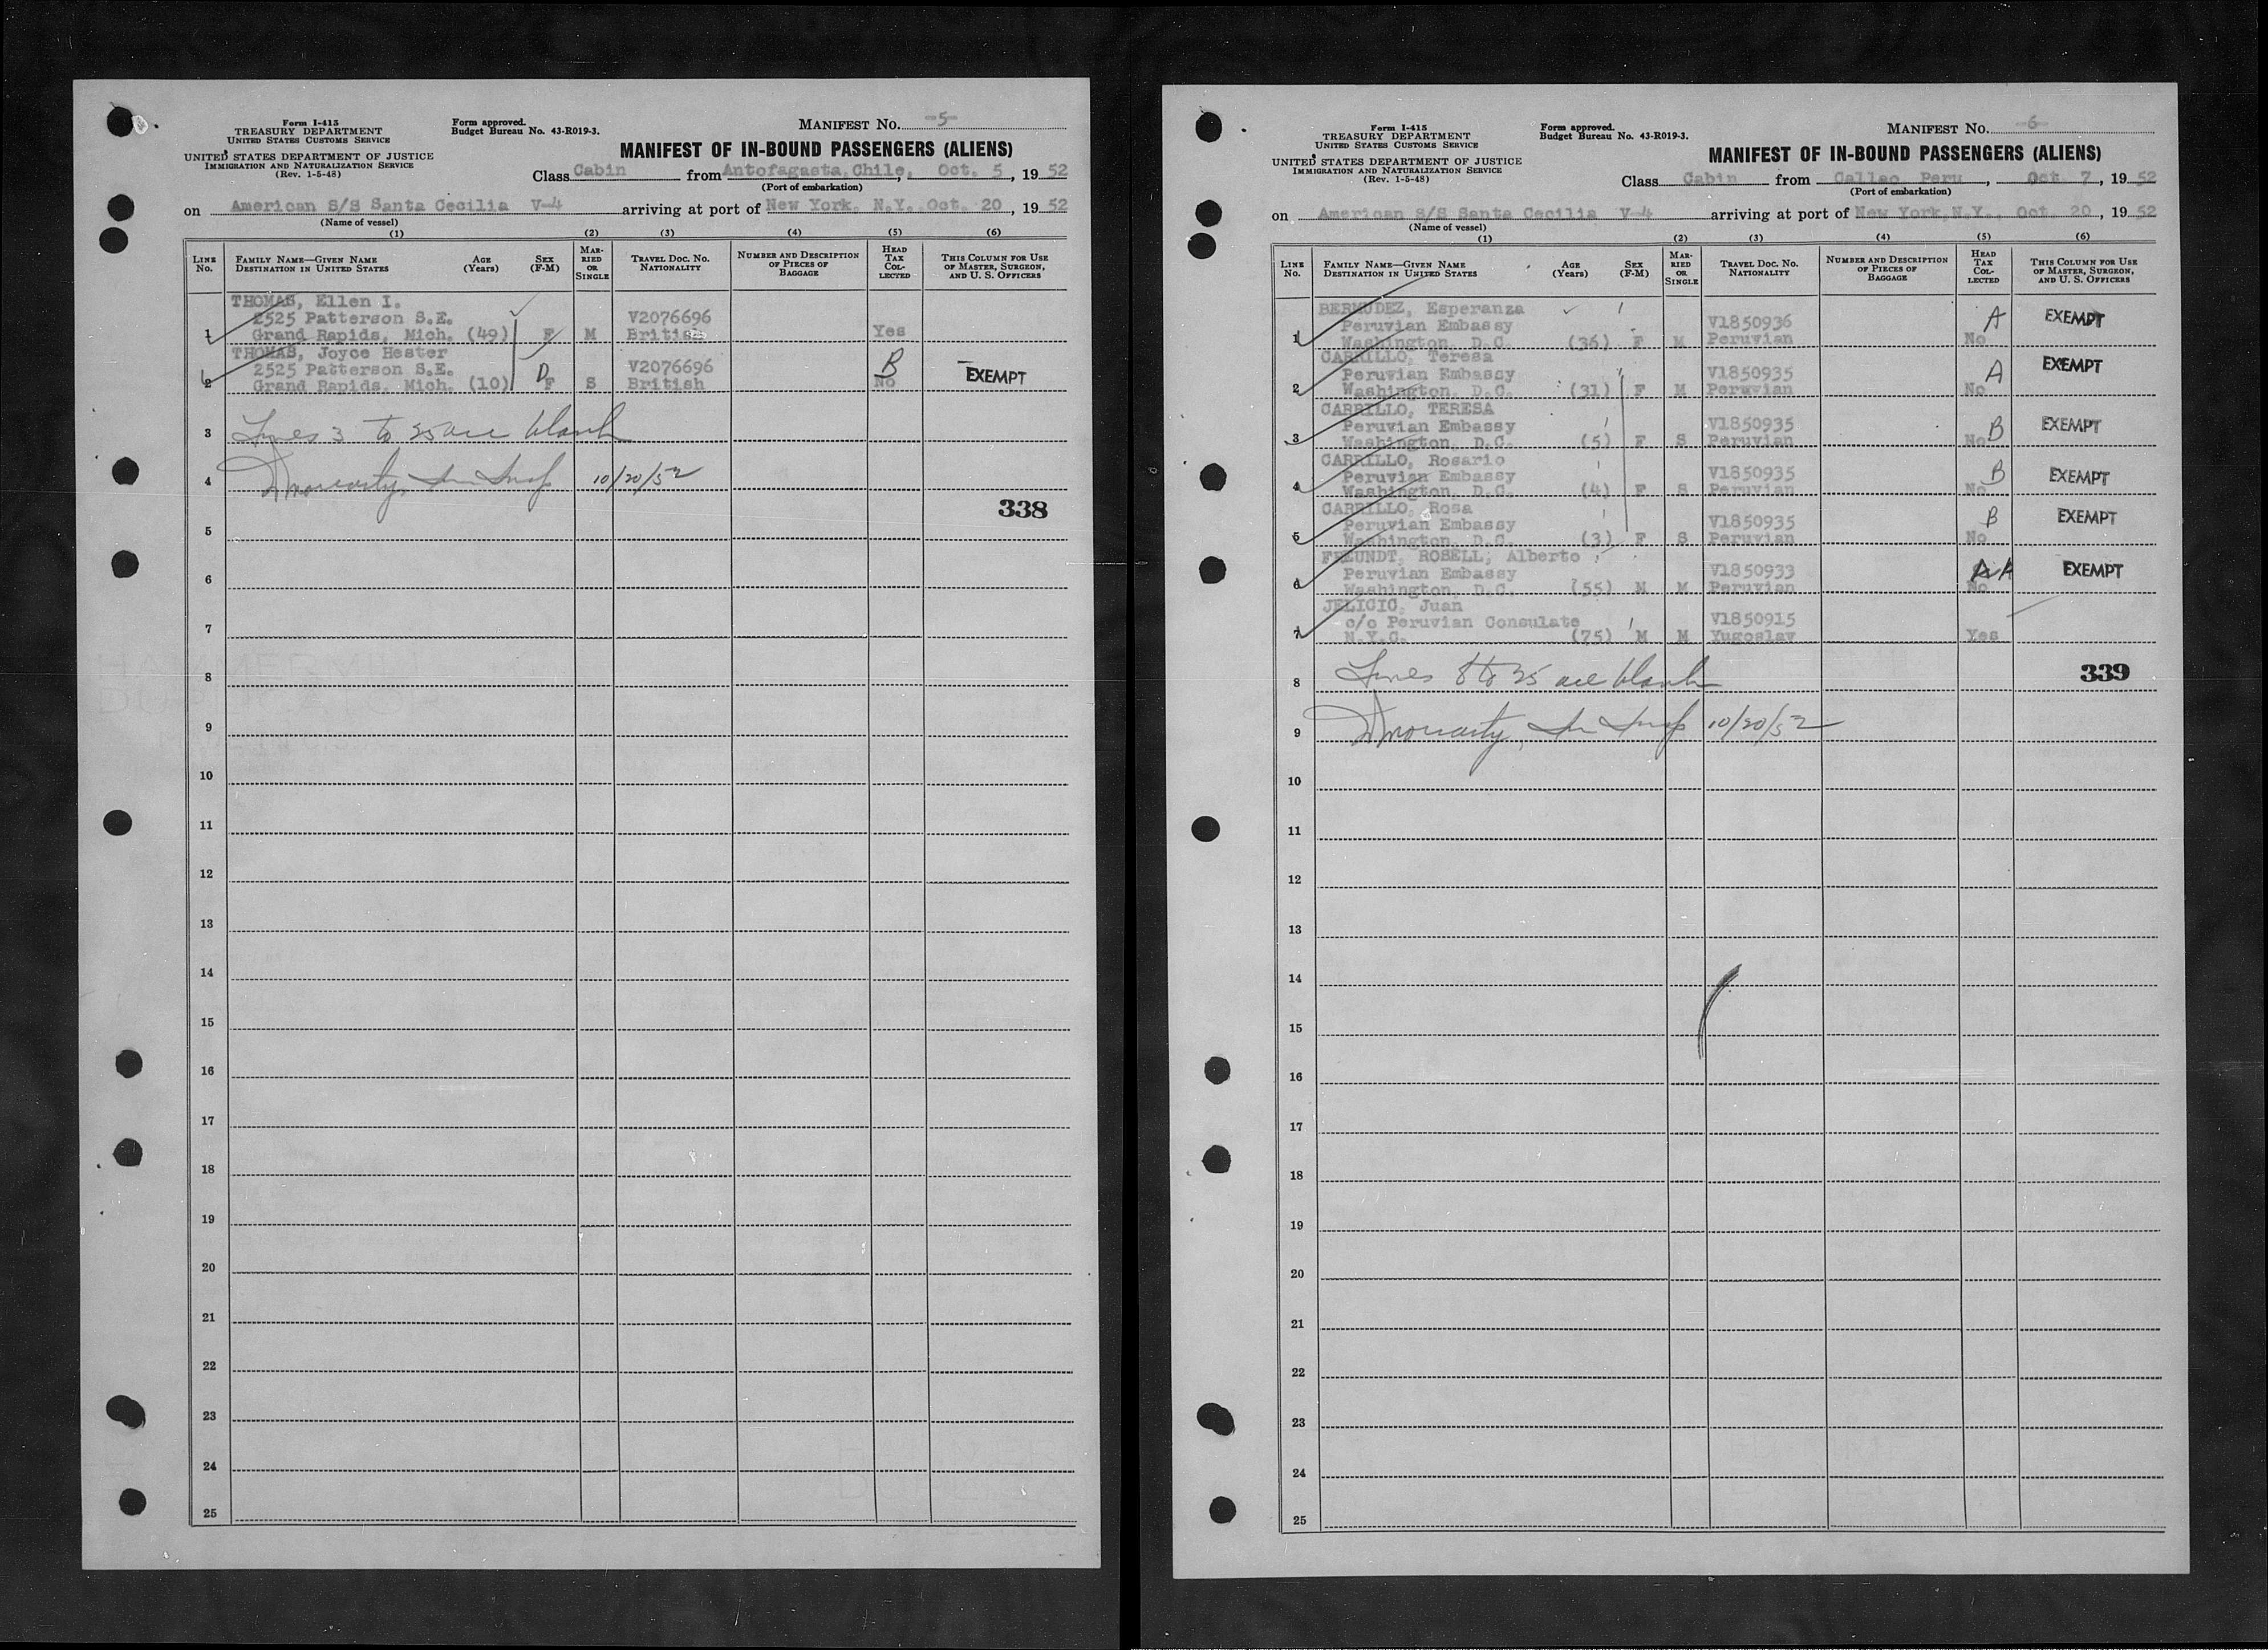 Form I-415
TREASURY DEPARTMENT
UNITED STATES CUSTOMS SERVICE
UNITED STATES DEPARTMENT OF JUSTICE
IMMIGRATION AND NATURALIZATION SERVICE
(Rev. 1-5-48)
Form approved.
Budget Bureau No. 43-R019-3.
MANIFEST No. -5-
MANIFEST OF IN-BOUND PASSENGERS (ALIENS)
Class Cabin from Antofagasta, Chile, Oct. 5, 19 52
(Port of embarkation)
on American S/S Santa Cecilia V-4 arriving at port of New York, N.Y. Oct. 20, 19 52
(Name of vessel)
(1) (2) (3) (4) (5) (6)
LINE No. FAMILY NAME—GIVEN NAME DESTINATION IN UNITED STATES AGE (Years) SEX (F-M) MARRIED OR SINGLE TRAVEL DOC. NO. NATIONALITY NUMBER AND DESCRIPTION OF PIECES OF BAGGAGE HEAD TAX COLLECTED THIS COLUMN FOR USE OF MASTER, SURGEON, AND U. S. OFFICERS
THOMAS, Ellen I.
2525 Patterson S.E. V2076696
1 Grand Rapids, Mich. (49) F M British Yes
THOMAS, Joyce Hester
2525 Patterson S.E. D V2076696 B EXEMPT
2 Grand Rapids, Mich. (10) F S British No
3 Lines 3 to 25 are blank
4 D Moriarty, Im Insp 10/20/52
338
5
6
7
8
9
10
11
12
13
14
15
16
17
18
19
20
21
22
23
24
25
Form I-415
TREASURY DEPARTMENT
UNITED STATES CUSTOMS SERVICE
UNITED STATES DEPARTMENT OF JUSTICE
IMMIGRATION AND NATURALIZATION SERVICE
(Rev. 1-5-48)
Form approved.
Budget Bureau No. 43-R019-3.
MANIFEST No. -6-
MANIFEST OF IN-BOUND PASSENGERS (ALIENS)
Class Cabin from Callao, Peru, Oct. 7, 19 52
(Port of embarkation)
on American S/S Santa Cecilia V-4 arriving at port of New York, N.Y., Oct. 20, 19 52
(Name of vessel)
(1) (2) (3) (4) (5) (6)
LINE No. FAMILY NAME—GIVEN NAME DESTINATION IN UNITED STATES AGE (Years) SEX (F-M) MARRIED OR SINGLE TRAVEL DOC. NO. NATIONALITY NUMBER AND DESCRIPTION OF PIECES OF BAGGAGE HEAD TAX COLLECTED THIS COLUMN FOR USE OF MASTER, SURGEON, AND U. S. OFFICERS
BERMUDEZ, Esperanza
Peruvian Embassy V1850936 A EXEMPT
1 Washington, D.C. (36) F M Peruvian No
CARRILLO, Teresa
Peruvian Embassy V1850935 A EXEMPT
2 Washington, D.C. (31) F M Peruvian No
CARRILLO, TERESA
Peruvian Embassy V1850935 B EXEMPT
3 Washington, D.C. (5) F S Peruvian No
CARRILLO, Rosario
Peruvian Embassy V1850935 B EXEMPT
4 Washington, D.C. (4) F S Peruvian No
CARRILLO, Rosa
Peruvian Embassy V1850935 B EXEMPT
5 Washington, D.C. (3) F S Peruvian No
FREUNDT, ROSELL, Alberto
Peruvian Embassy V1850933 A A EXEMPT
6 Washington, D.C. (55) M M Peruvian No
JELICIC, Juan
c/o Peruvian Consulate V1850915
7 N.Y.C. (75) M M Yugoslav Yes
8 Lines 8 to 25 are blank 339
9 D Moriarty, Im Insp 10/20/52
10
11
12
13
14
15
16
17
18
19
20
21
22
23
24
25